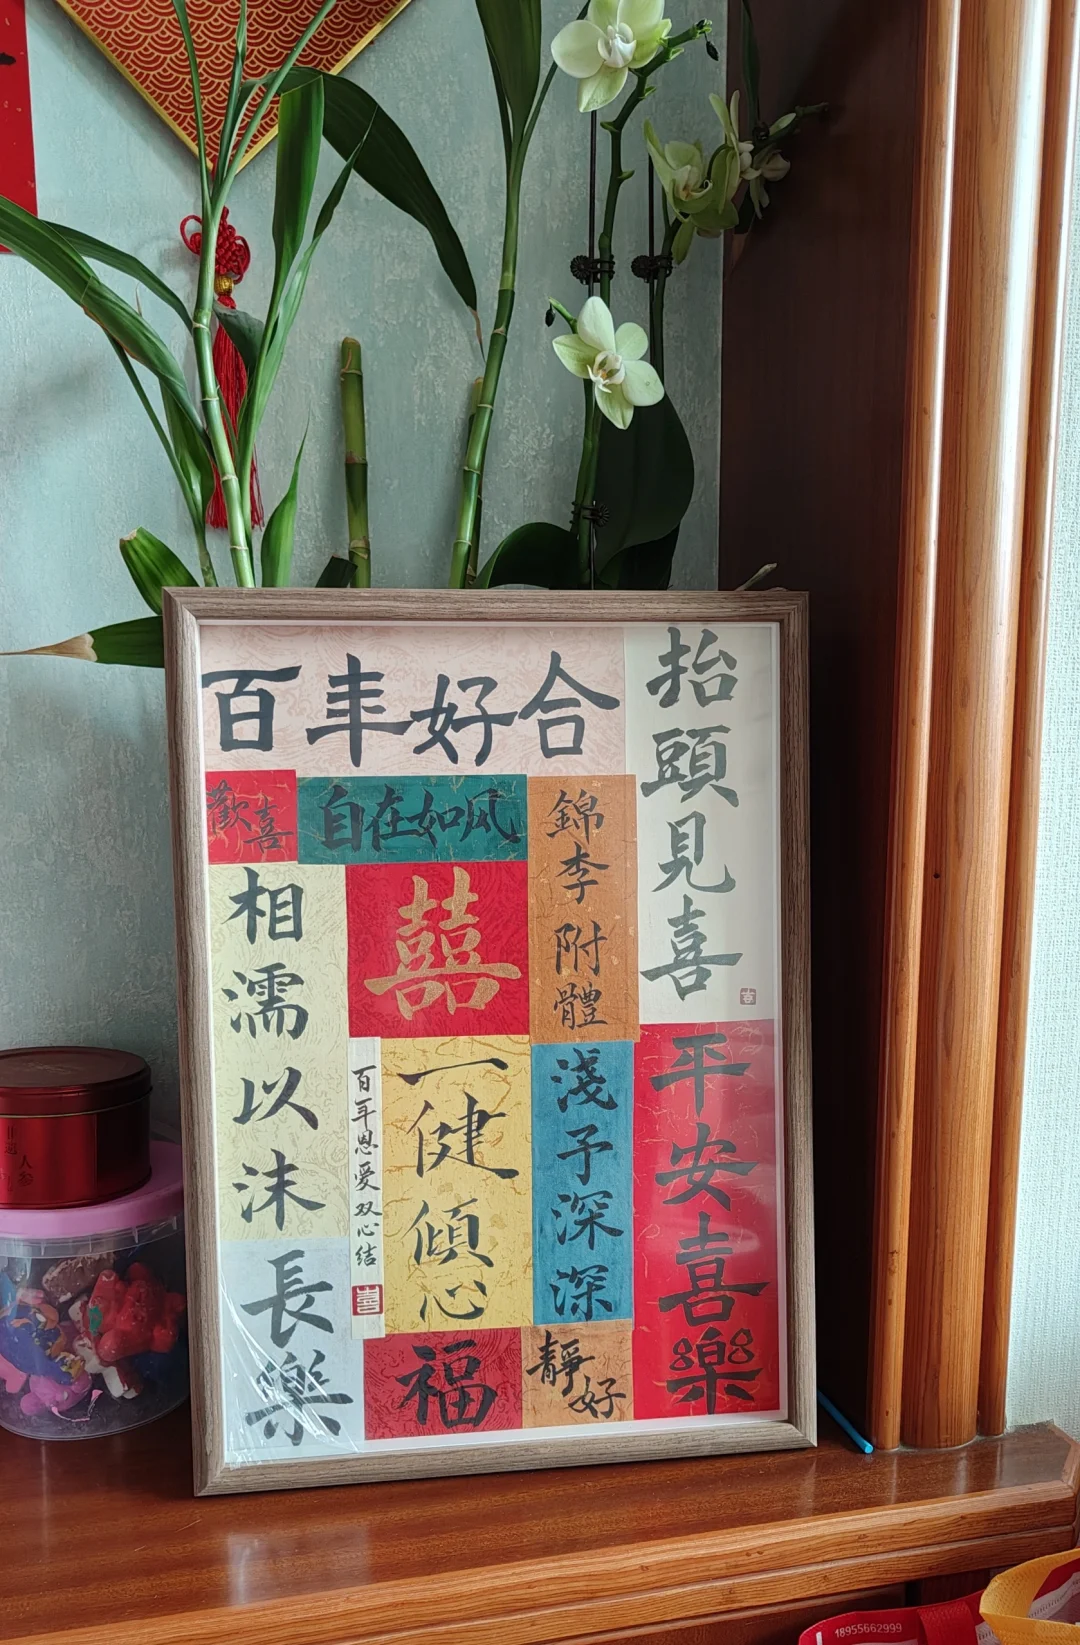 百年好合
抬頭見喜
歡喜
自在如风
錦李附體
相濡以沫
囍
百年恩爱双心结
喜
一健傾心
淺予深深
平安喜樂
長樂
福
靜好
18955662999